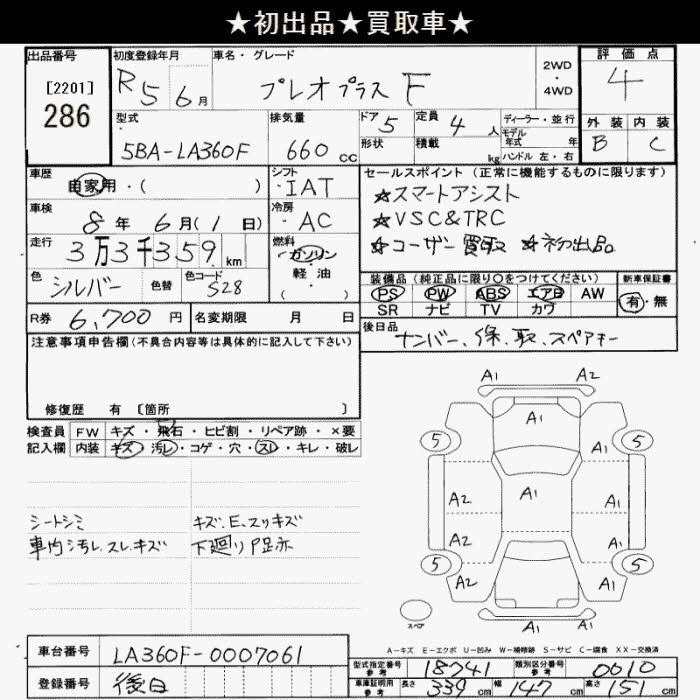 ★初出品★買取車★
出品番号 初度登録年月 車名・グレード 2WD ・ 4WD 評価点
[2201]
286
R5 6月 プレオプラス F 4
型式 排気量 ドア 5 定員 4人 ディーラー・並行 外装 内装
5BA-LA360F 660cc 形状 積載 kg モデル年式 年 B C
ハンドル 左・右
車歴 シフト セールスポイント(正常に機能するものに限ります)
自家用・( ) IAT ★スマートアシスト
車検 冷房 ★VSC&TRC
8年6月(1日) AC ★ユーザー買取 ★初出品
走行 燃料
3万3千359km ガソリン
軽油
・( )
色 色替 色コード 装備品(純正品に限り○をつけてください) 新車保証書
シルバー S28 PS PW ABS エアB AW 有・無
SR ナビ TV カワ
R券 6,700円 名変期限 月 日 後日品
ナンバー、保、取、スペアキー
注意事項申告欄(不具合内容等は具体的に記入して下さい)
修復歴 有 [箇所 ]
検査員 FW キズ・飛石・ヒビ割・リペア跡・×要
記入欄 内装 キズ・汚レ・コゲ・穴・スレ・キレ・破レ
シートシミ キズ、E、スリキズ
車内汚レ、スレ、キズ 下廻り
A1 A2
A1
5 5
A2 A1 A1
A2 A1
A1
5 5
A2
A1 A1
スペア
A-キズ E-エクボ U-凹み W-補修跡 S-サビ C-腐食 XX-交換済
車台番号 LA360F-0007061
登録番号 後日
型式指定番号 参考 18741 類別区分番号 参考 0610
車庫証明用 参考 長さ 339cm 幅 147cm 高さ 151cm